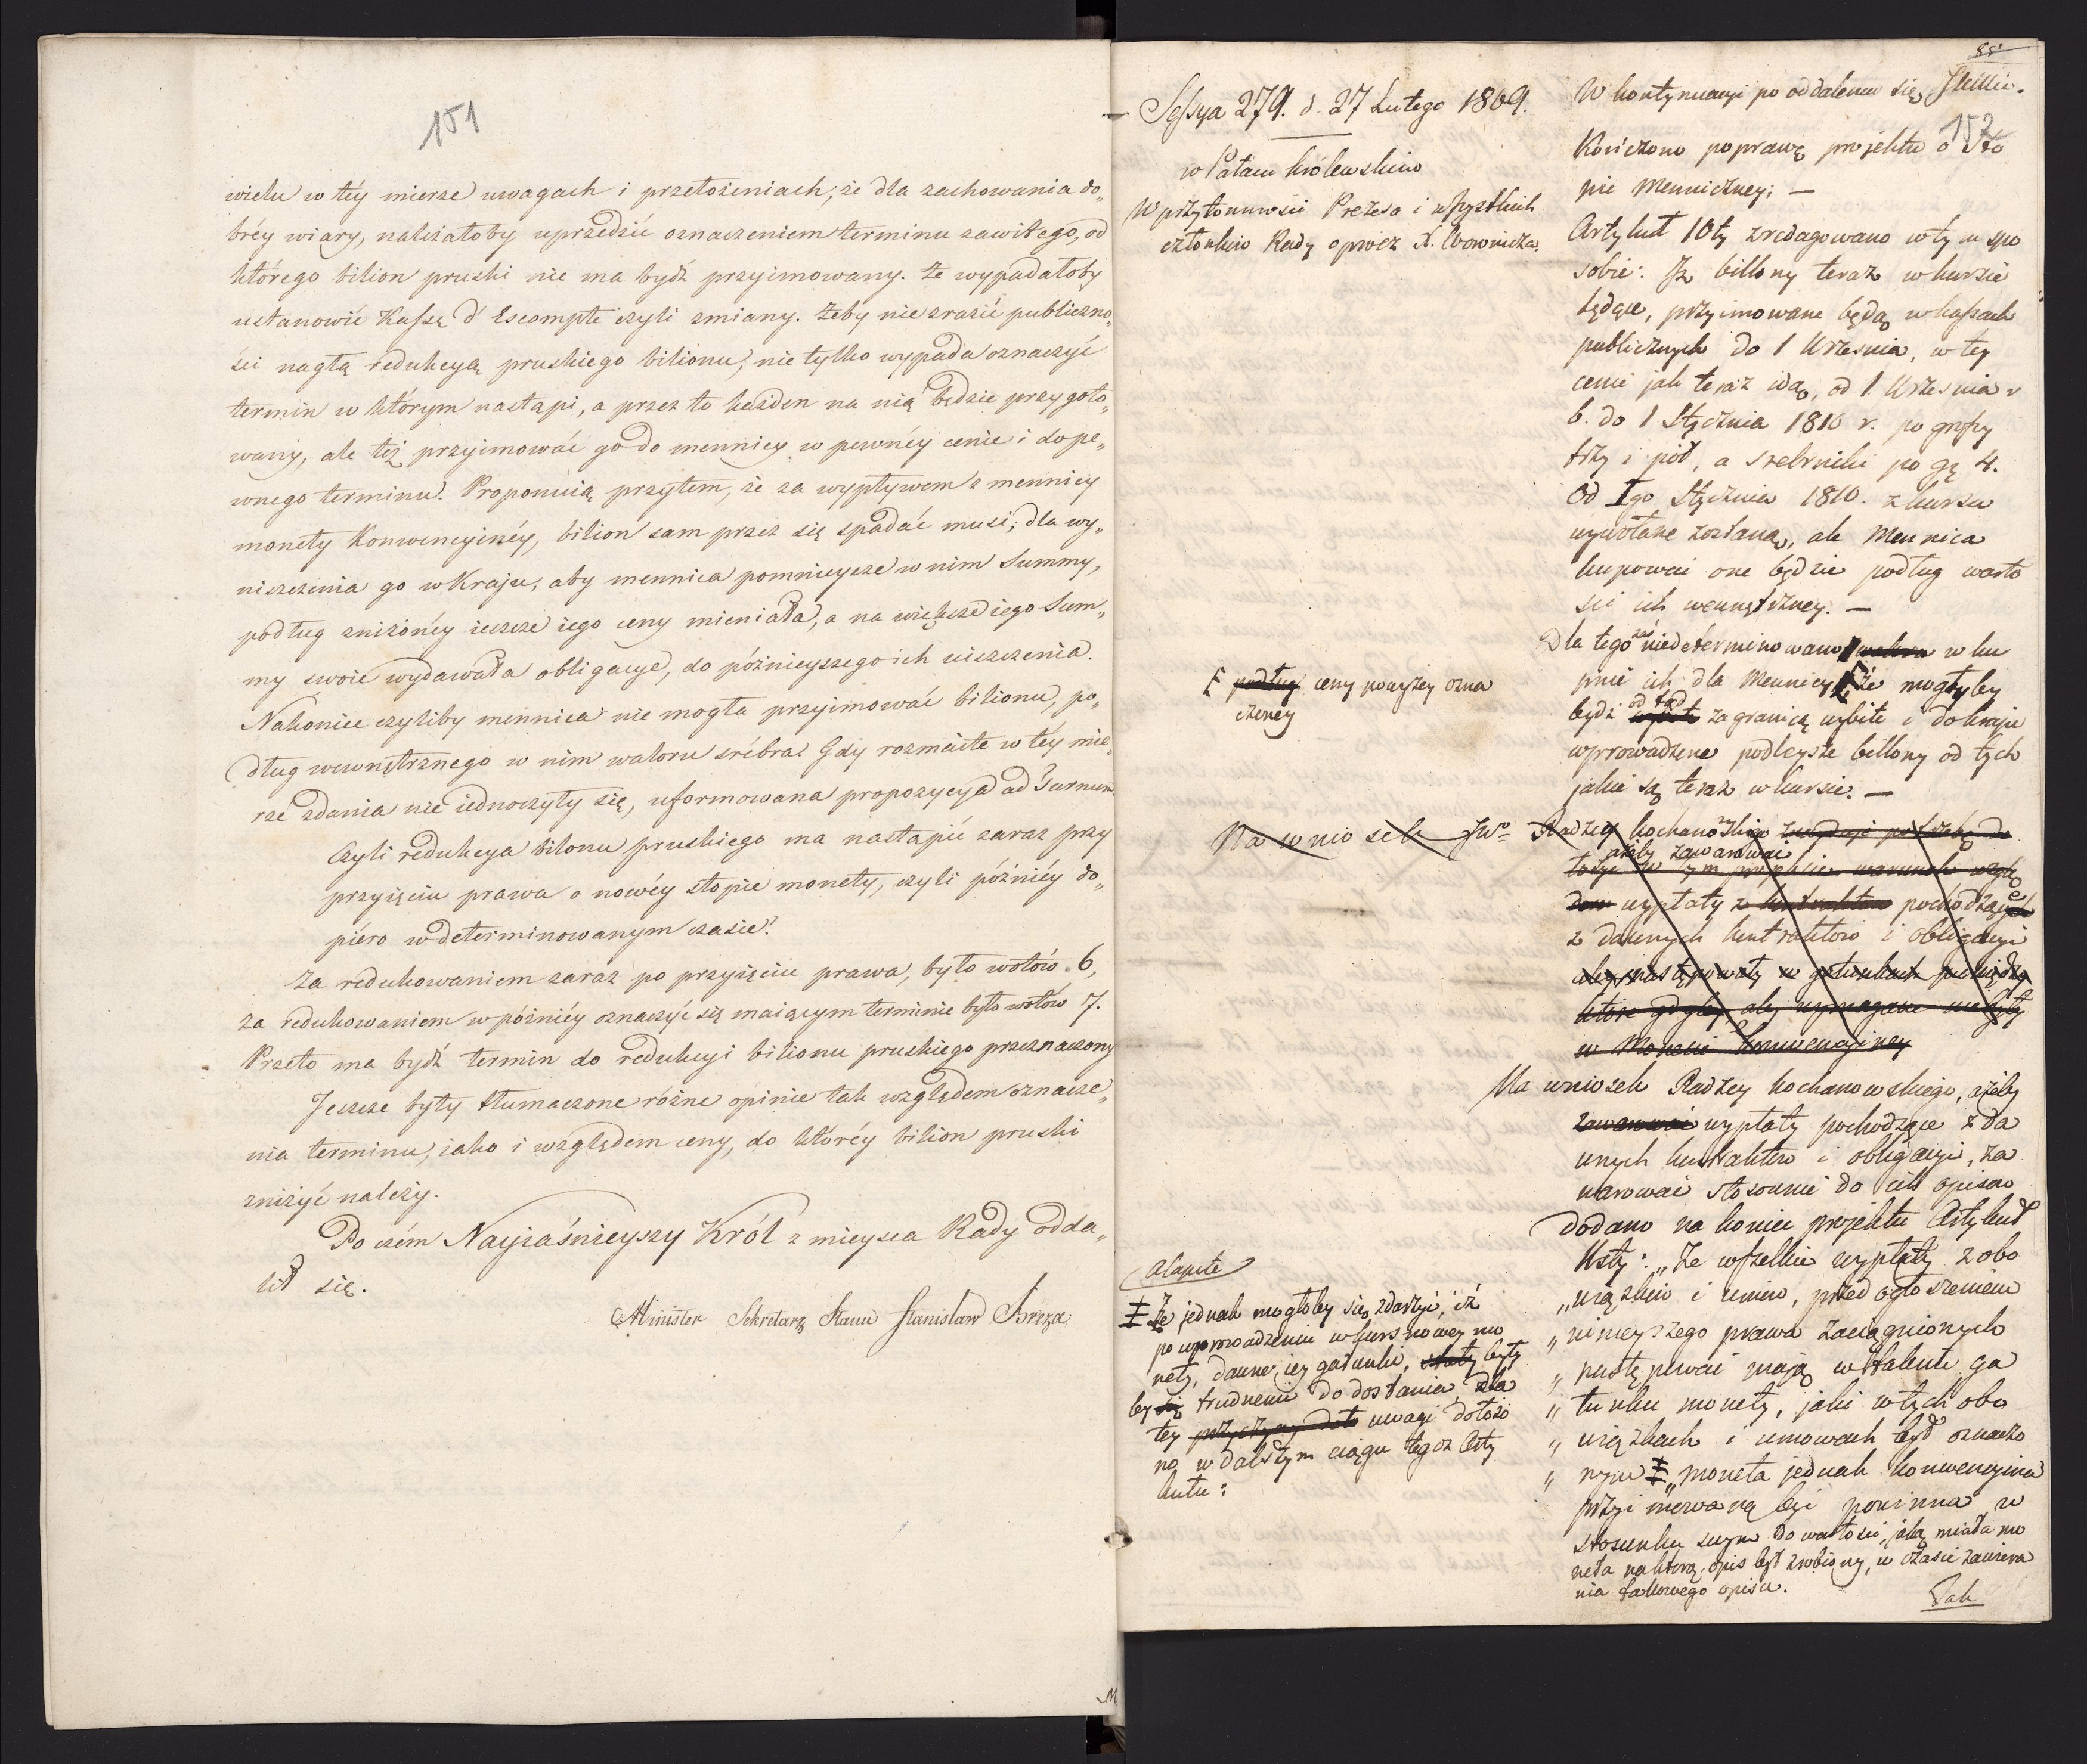 151
wielu w téy mierze uwagach i przełożeniach; że dla zachowania do„
bréy wiary, należałoby uprzedzić oznaczeniem terminu zawitego, od
którego bilion pruski nie ma bydź przyimowany. Że wypadałoby
ustanowić Kassę d'Escompte czyli zmiany. Żeby nie zrazić publiczno„
ści nagłą redukcyą pruskiego bilionu, nie tylko wypada oznaczyć
termin w którym nastąpi, a przez to każden na nią będzie przygoto„
wany, ale téż przyimować go do mennicy w pewnéy cenie i do pe„
wnego terminu. Proponuią przytem, że za wypływem z mennicy
monety Konwencyinéy, bilion sam przez się spadać musi; dla wy„
niszczenia go w Kraju, aby mennica pomnieysze w nim Summy,
podług zniżonéy ieszcze iego ceny mieniała, a na większe iego Sum„
my swoie wydawała obligacye, do późnieyszego ich uiszczenia.
Nakoniec czyliby mennica nie mogła przyimować bilionu, po„
dług wewnętrznego w nim waloru srébra? Gdy rozmaite w téy mie„
rze zdania nie iednoczyły się, uformowana propozycya ad Turnum
Czyli redukcya bilonu pruskiego ma nastąpić zaraz przy
przyięciu prawa o nowéy stopie monety, czyli późniéy do„
piéro w determinowanym czasie?
Za redukowaniem zaraz po przyięciu prawa, było wotów 6,
za redukowaniem w późniéy oznaczyć się maiącym terminie było wotów 7.
Przeto ma bydź termin do redukcyi bilionu pruskiego przeznaczony
Jeszcze były tłumaczone różne opinie tak względem oznacze„
nia terminu, iako i względem ceny, do któréy bilion pruski
zniżyć należy.
Po czém Nayiaśnieyszy Król z mieysca Rady odda„
lił się.
Minister Sekretarz Stanu Stanisław Breza
Sessya 279. d. 27 Lutego 1809.
w Pałacu Królewskim
W przytomności Prezesa i wszystkich
członków Rady oprócz X. Woronicza
podług ceny powyżey ozna
czoney
Na wniosek JW°
alapite
Że jednak mogłoby się zdarzyć, iż
po wprowadzeniu w kurs nowey mo
nety, dawne iey gatunki, stały były
by się trudnemi do dostania dla
tey przyczyny uwagi dołożo
no w dalszym ciągu tegoż Arty
kułu:
W kontynuacyi po oddaleniu się
152
Kończono poprawę projektu o Sto
pie Menniczney; —
Artykuł 10ty zredagowano w tym spo
sobie: Iż billony teraz w kursie
będące, przyimowane będą w kassach
publicznych do 1 Września, w tey
cenie jak teraz idą, od 1 Września r
b. do 1 Stycznia 1810 r. po groszy
trzy i pół, a srebrniki po gr 4.
Od 1go Stycznia 1810. z kursu
wywołane zostaną, ale Mennica
kupować one będzie podług warto
ści ich wewnętrzney. —
Dla tego zaś niedeterminowano w ku
pnie ich dla Mennicy, że mogłyby
bydź od tąd zagranicą wybite i do kraju
wprowadzone podleysze billony od tych
jakie są teraz w kursie. —
Radzcy Kochanowskiego
ażeby zawarować
wypłaty z kontraktow pochodzące
z dawnych kontraktow i obligacyi
w Monecie Konwencyiney
Na wniosek Radzcy Kochanowskiego, ażeby
zawarować wypłaty pochodzące z da
wnych kontraktow i obligacyi, za
warować stosownie do ich opisow
dodano na koniec projektu Artykuł
„Że wszelkie wypłaty z obo
„wiązkow i umow, przed ogłoszeniem
„ninieyszego prawa zaciągnionych
„nastę powai mają w takim ga
„tunku monety, jaki w tych obo
„wiązkach i umowach był oznaczo
„nym „moneta jednak konwencyina
przyimowaną być powinna w
stosunku swym do wartości, jaką miała mo
neta na którą opis był zrobiony, w czasie zawiera
nia takowego opisu.
Tak